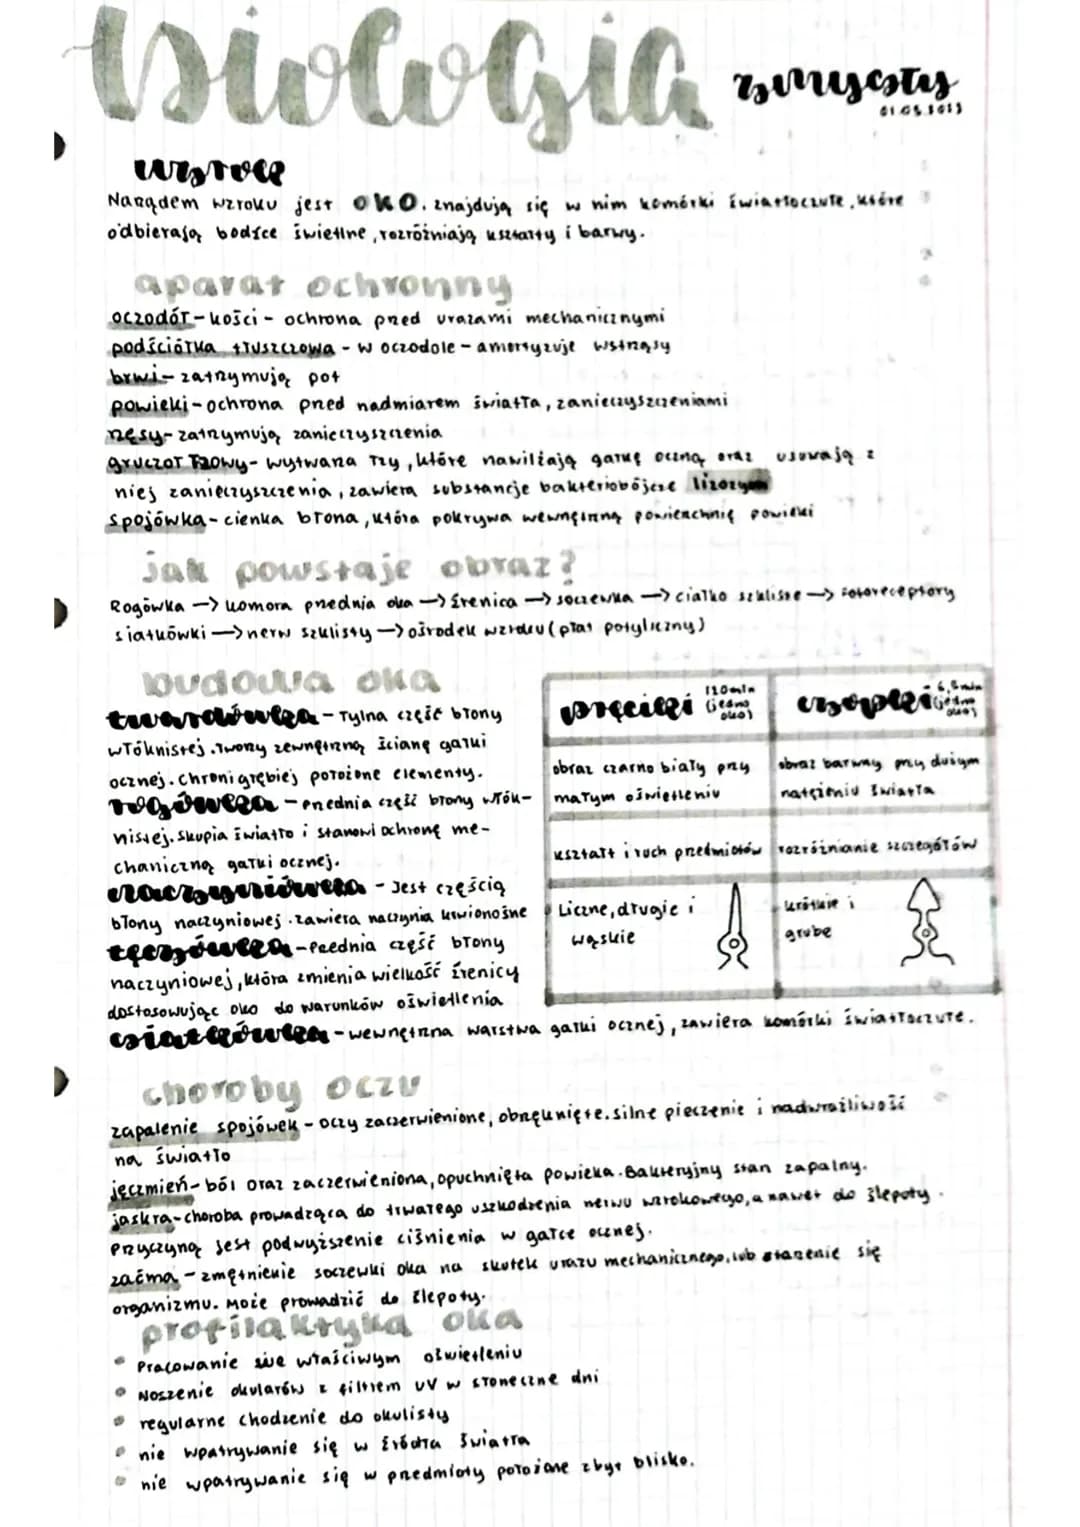 biologia zmysły
01.05.2023
wzrok
Narządem wzroku jest OKO. znajdują się w nim komórki światłoczułe, które
odbierają bodźce świetlne, rozróżniają kształty i barwy.
aparat ochronny
oczodół - kości - ochrona przed urazami mechanicznymi
podściółka tłuszczowa - w oczodole - amortyzuje wstrząsy
brwi - zatrzymują pot
powieki - ochrona przed nadmiarem światła, zanieczyszczeniami
rzęsy - zatrzymują zanieczyszczenia
gruczoł łzowy - wytwarza łzy, które nawilżają gałkę oczną oraz usuwają z
niej zanieczyszczenia, zawiera substancje bakteriobójcze lizozym
spojówka - cienka błona, która pokrywa wewnętrzną powierzchnię powieki
jak powstaje obraz?
Rogówka → komora przednia oka → źrenica → soczewka → ciałko szkliste → fotoreceptory
siatkówki → nerw szklisty → ośrodek wzroku (płat potyliczny)
budowa oka
twardówka - Tylna część błony
włóknistej. Tworzy zewnętrzną ścianę gałki
ocznej. Chroni głębiej położone elementy.
rogówka - przednia część błony włók-
nistej. Skupia światło i stanowi ochronę me-
chaniczną gałki ocznej.
naczyniówka - Jest częścią
błony naczyniowej. zawiera naczynia krwionośne
tęczówka - Przednia część błony
naczyniowej, która zmienia wielkość źrenicy
dostosowując oko do warunków oświetlenia
siatkówka - wewnętrzna warstwa gałki ocznej, zawiera komórki światłoczułe.
pręciki 120mln (jedno oko) czopki 6,5mln (jedno oko)
obraz czarno biały przy obraz barwny przy dużym
małym oświetleniu natężeniu światła
kształt i ruch przedmiotów rozróżnianie szczegółów
Liczne, długie i krótkie i
wąskie grube
choroby oczu
zapalenie spojówek - oczy zaczerwienione, obrzęknięte. silne pieczenie i nadwrażliwość
na światło
jęczmień - ból oraz zaczerwieniona, opuchnięta powieka. Bakteryjny stan zapalny.
jaskra - choroba prowadząca do trwałego uszkodzenia nerwu wzrokowego, a nawet do ślepoty.
Przyczyną jest podwyższenie ciśnienia w gałce ocznej.
zaćma - zmętnienie soczewki oka na skutek urazu mechanicznego, lub starzenie się
organizmu. Może prowadzić do ślepoty.
profilaktyka oka
Pracowanie we właściwym oświetleniu
Noszenie okularów z filtrem UV w słoneczne dni
regularne chodzenie do okulisty
nie wpatrywanie się w źródła światła
nie wpatrywanie się w przedmioty położone zbyt blisko.